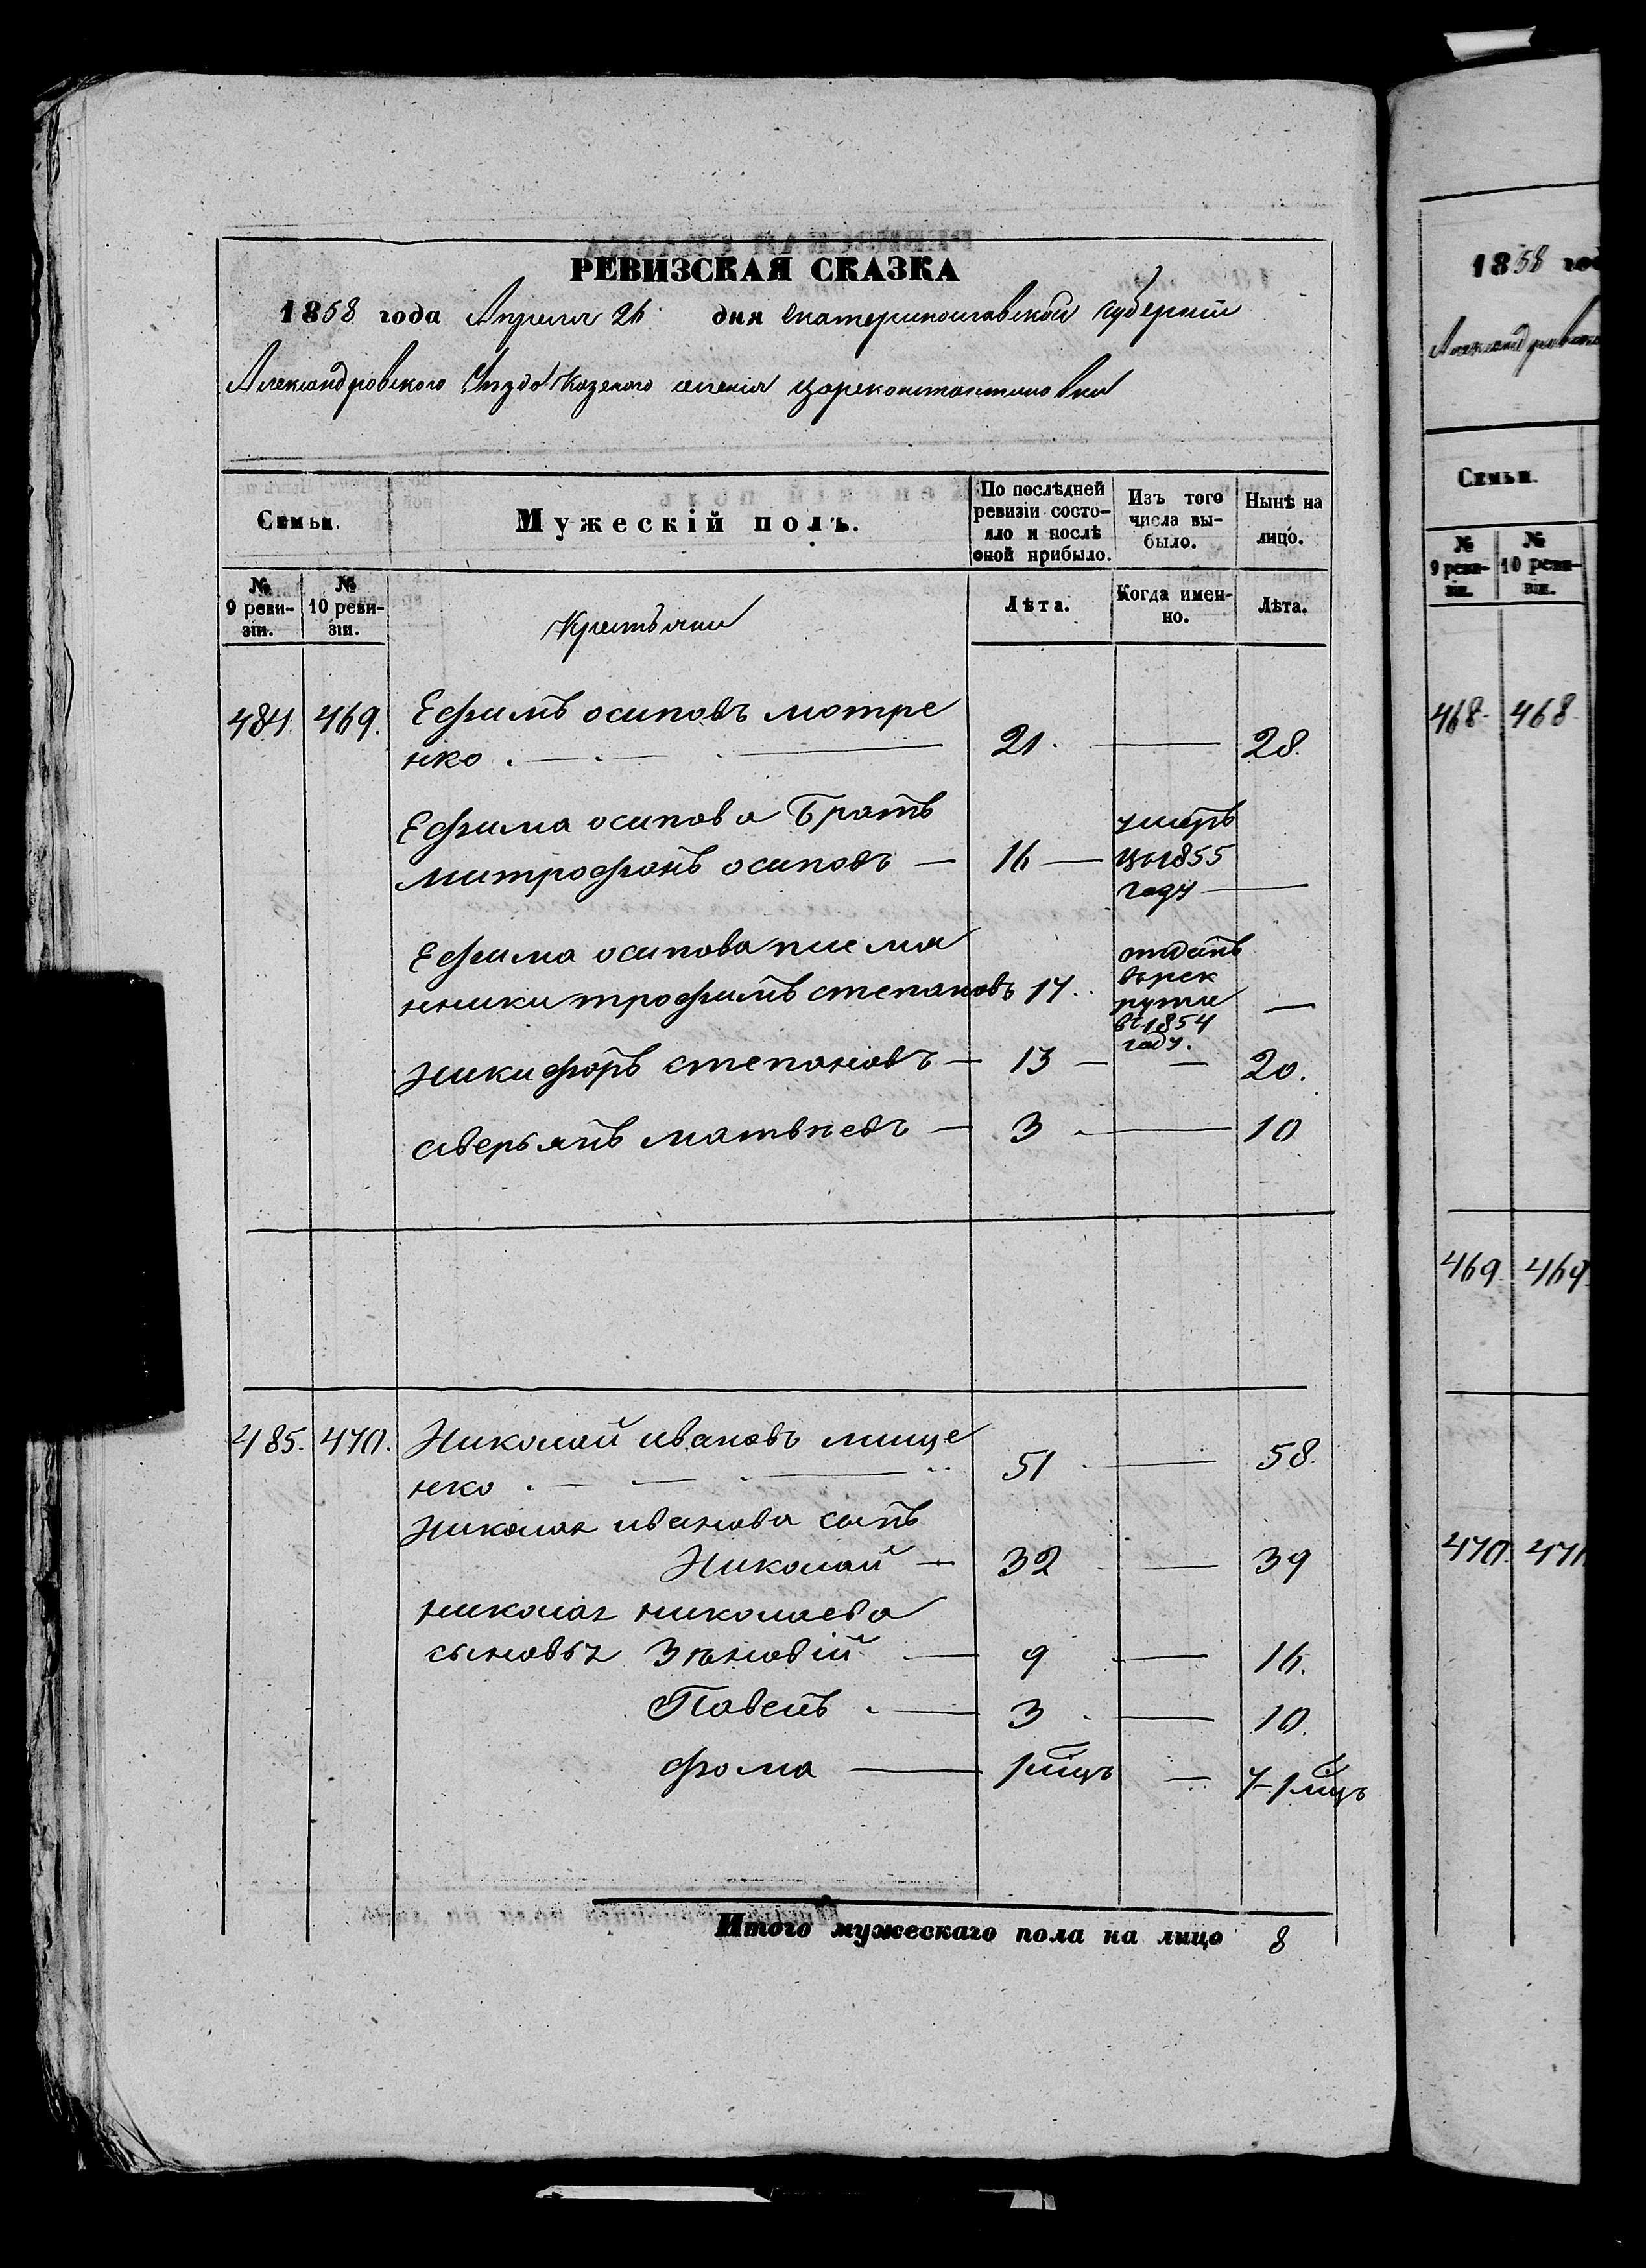 РЕВИЗСКАЯ СКАЗКА
1858 года Апреля 26 дня екатеринославской губернии
Александровского Уезда Казеного селения цареконстантиновки
Семьи.
Мужескій полъ.
По послѣдней ревизіи состо-
яло и послѣ
оной прибыло.
Изъ того числа вы-
было.
Нынѣ на
лицо.
№ 9 реви-
зіи.
№ 10 реви-
зіи.
Крестьяни
Лѣта.
Когда имен-
но.
Лѣта.
484. 469. Ефимъ осиповъ мотре
нко 21. 28.
Ефима осипова Братъ
митрофанъ осиповъ — 16 — умеръ
въ 1855
году —
Ефима осипова племя
нники трофимъ степановъ 17. отданъ
въ рек
рути
въ 1854
году. —
Никифоръ степановъ — 13 — — 20.
аверьянъ матвѣевъ — 3 — 10
485. 470. Николай ивановъ мище
нко 51 — 58.
Николая иванова сынъ
Николай — 32 — 39
николая николаева
сыновья Зѣновій — 9 — 16.
Павелъ — 3 — 10.
фома — 1 мцъ — 7-1 мцъ
Итого мужескаго пола на лицо 8
1858 год
Александровско
Семьи.
№ 9 реви-
зіи.
№ 10 реви-
зіи.
468. 468.
469. 469.
470. 470